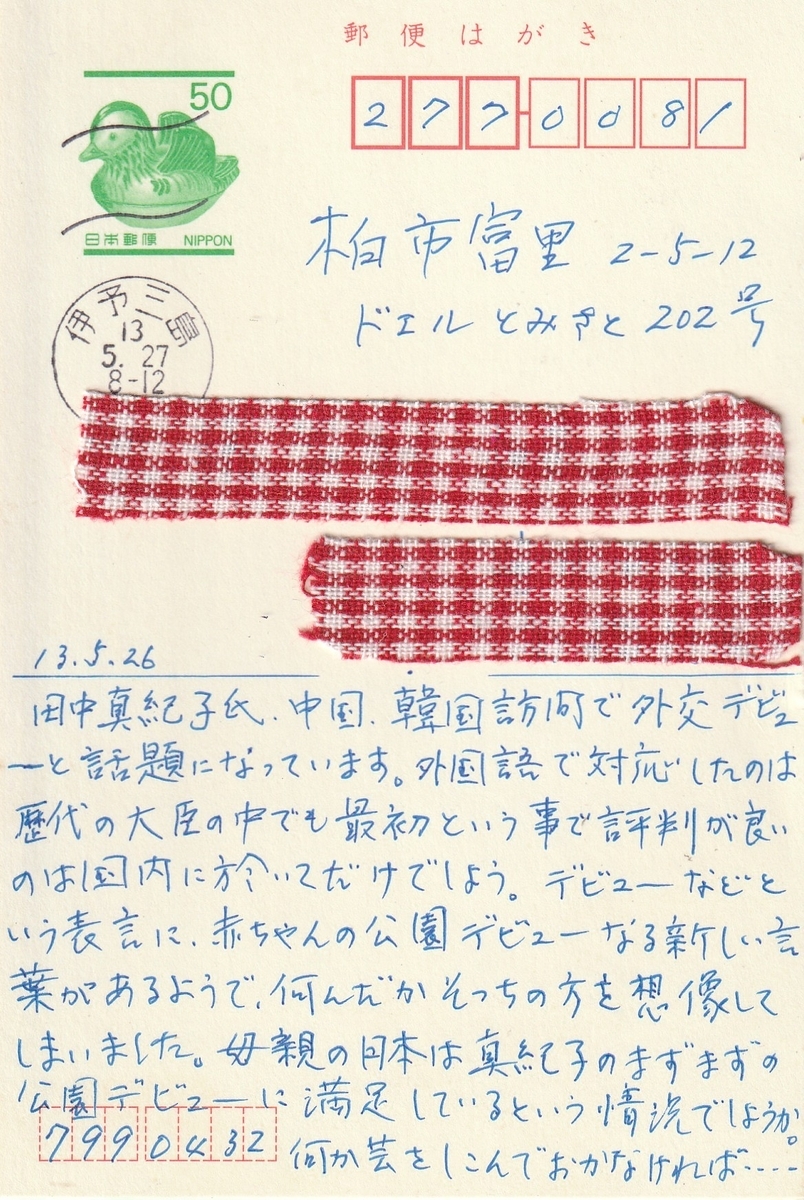 郵便はがき
50
2770081
日本郵便 NIPPON
柏市富里 2-5-12
ドエルとみさと 202号
伊予三島
13
5.27
8-12
13.5.26
田中真紀子氏、中国、韓国訪問で外交デビュ
ーと話題になっています。外国語で対応したのは
歴代の大臣の中でも最初という事で評判が良い
のは国内に於いてだけでしょう。デビューなどと
いう表言に、赤ちゃんの公園デビューなる新しい言
葉があるようで、何んだかそっちの方を想像して
しまいました。母親の日本は真紀子のまずまずの
公園デビューに満足しているという情況でしょうか。
何か芸をしこんでおかなければ‥‥
7990432